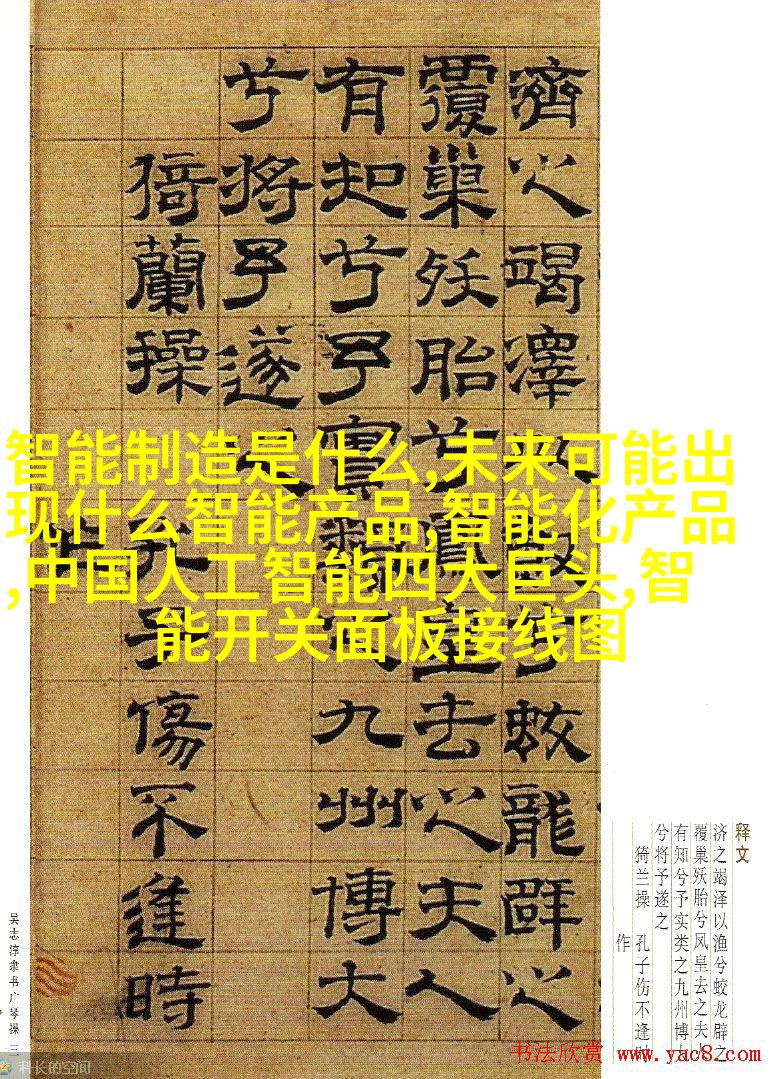 濟之竭澤以漁兮蛟龍辟之
覆巢殀胎兮鳳皇去之夫人
有知兮予實類之九州博大
兮將予遂之
猗蘭操 孔子傷不逢時
智能制造是什么,未来可能出
现什么智能产品,智能化产品
,中国人工智能四大巨头,智
能开关面板接线图
释文
济之竭泽以渔兮蛟龙辟之
覆巢殀胎兮凤皇去之夫人
有知兮予实类之九州博大
兮将予遂之
猗兰操 孔子伤不逢时
作
吴志淳隶书广琴操 三
书法欣赏 www.yac8.com
科长的空间